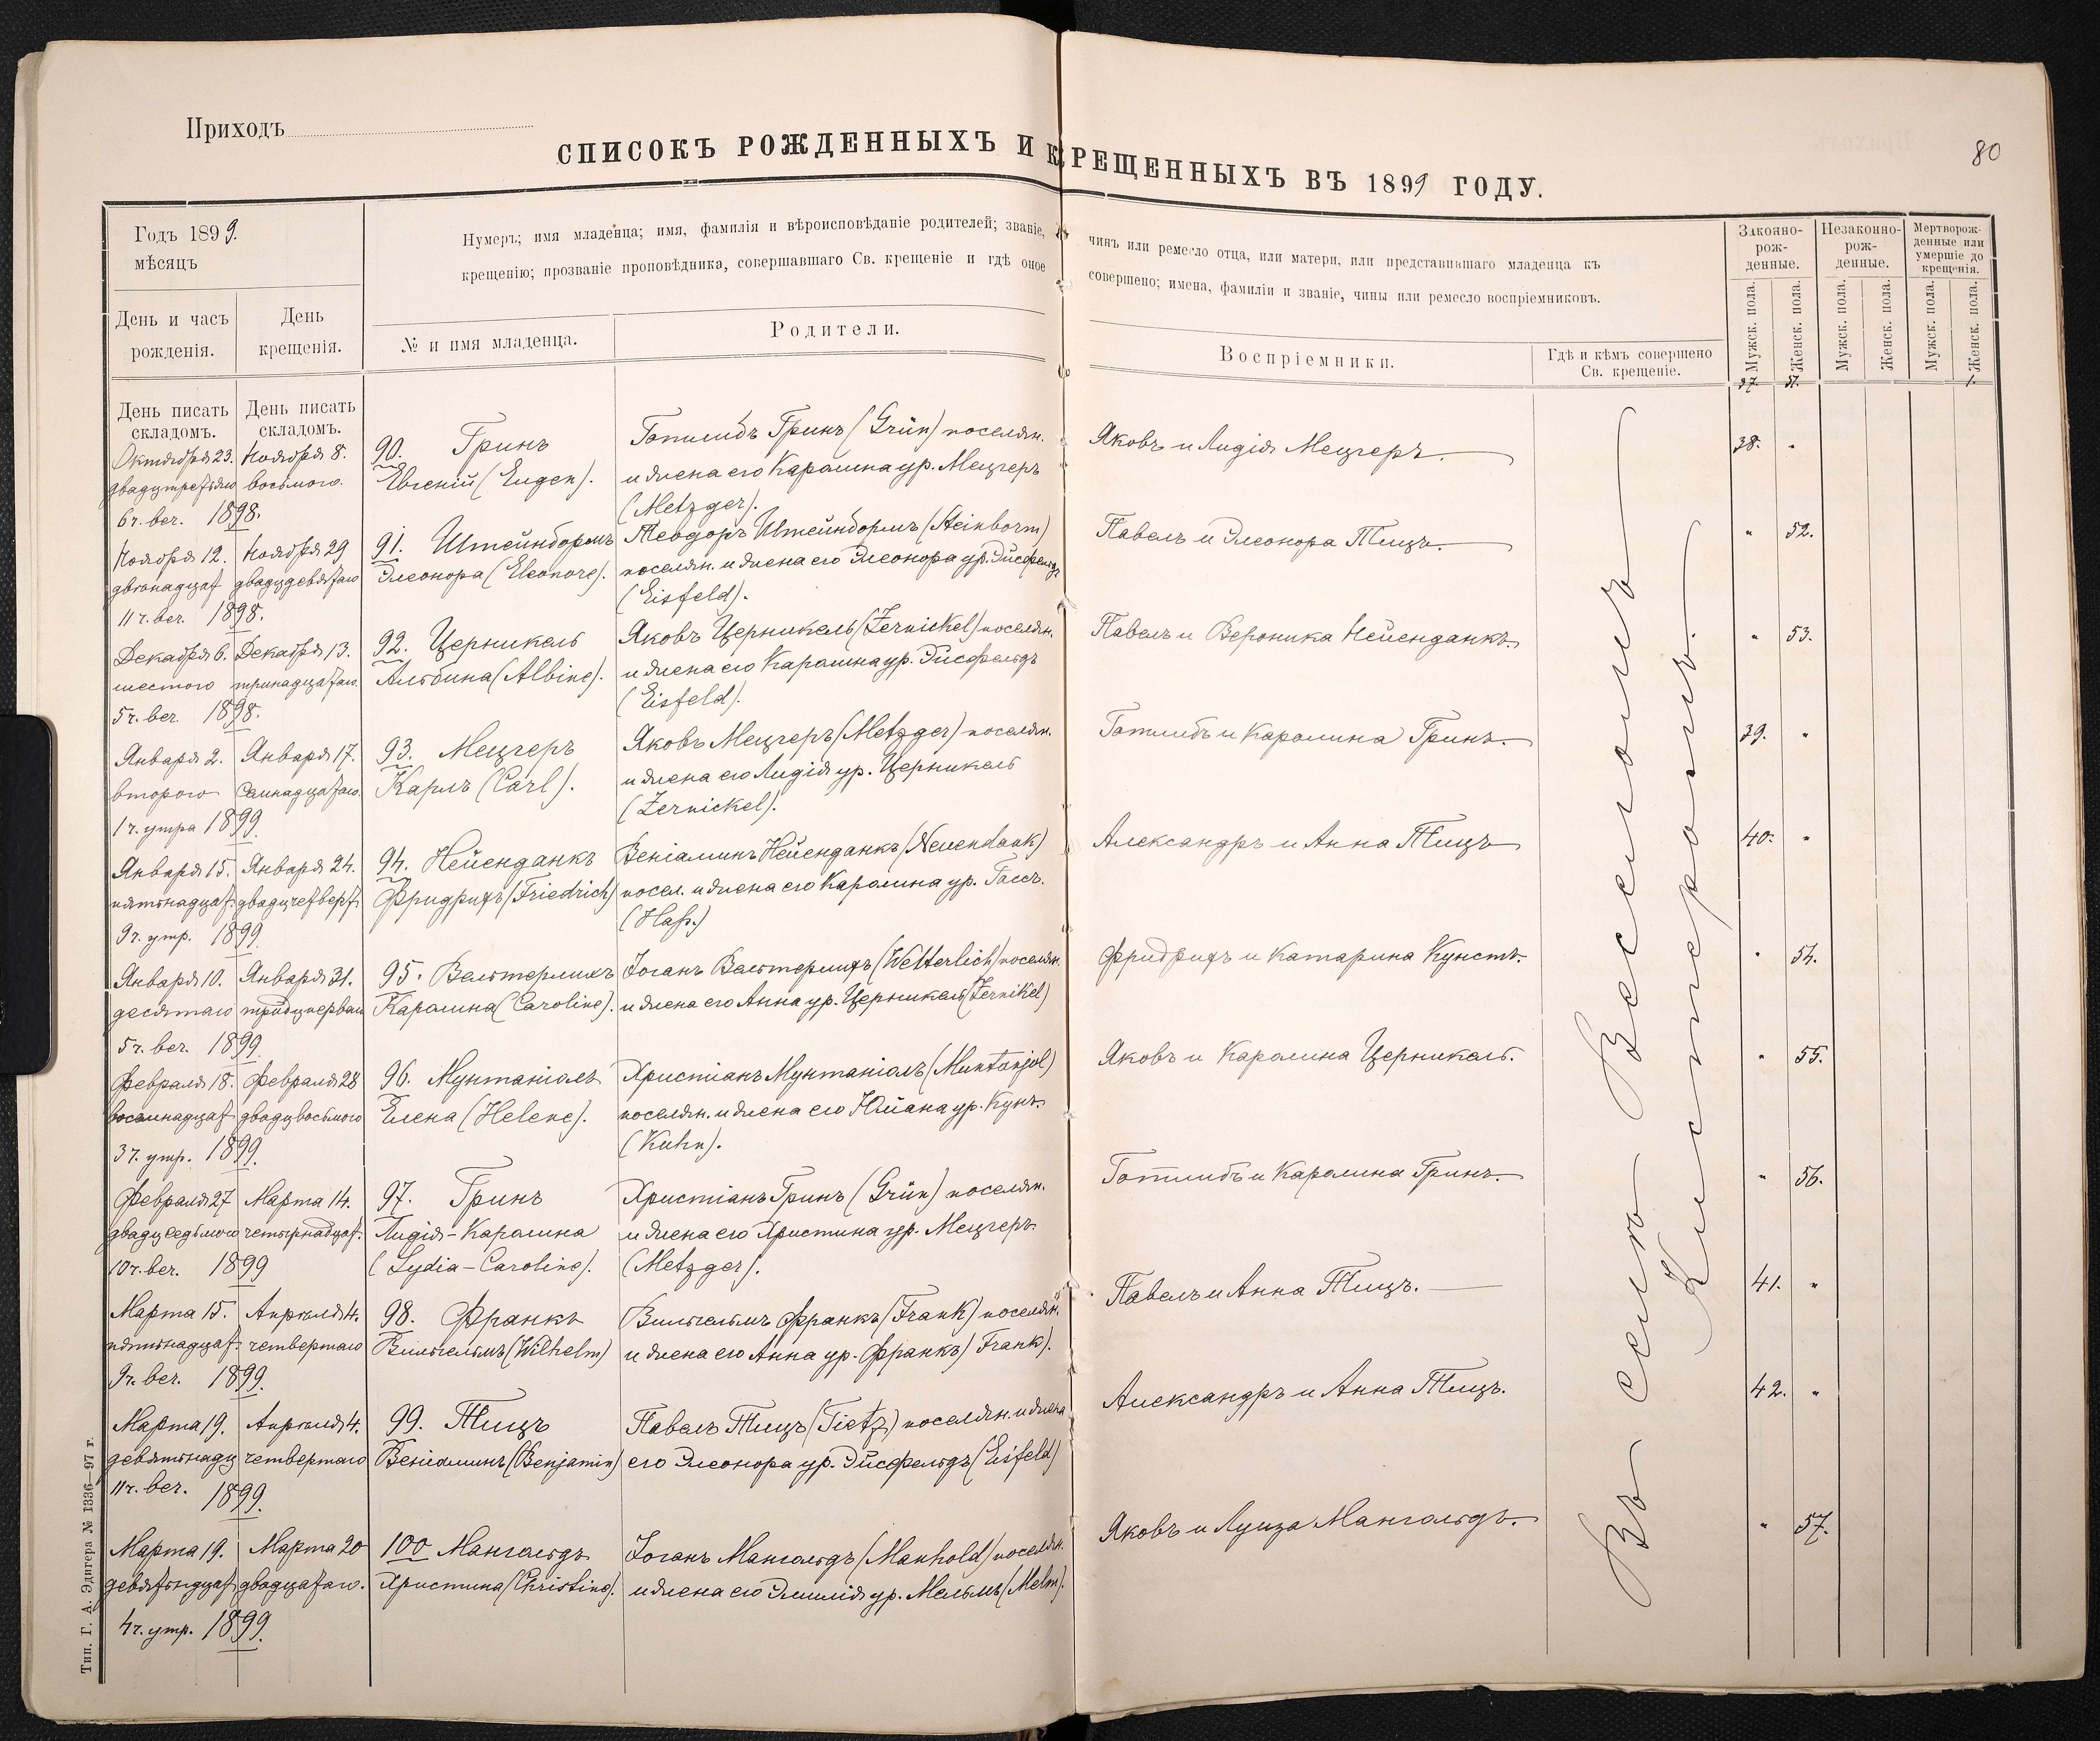 Приходъ
80
СПИСОКЪ РОЖДЕННЫХЪ И КРЕЩЕННЫХЪ ВЪ 1899 ГОДУ.
Годъ 1899.
мѣсяцъ
День и часъ
рожденія.
День
крещенія.
Нумеръ; имя младенца; имя, фамилія и вѣроисповѣданіе родителей; званіе,
чинъ или ремесло отца, или матери, или представившаго младенца къ
крещенію; прозваніе проповѣдника, совершавшаго Св. крещеніе и гдѣ оное
совершено; имена, фамиліи и званіе, чины или ремесло воспріемниковъ.
№ и имя младенца.
Родители.
Воспріемники.
Гдѣ и кѣмъ совершено
Св. крещеніе.
Законно-
рож-
денные.
Незаконно-
рож-
денные.
Мертворож-
денные или
умершіе до
крещенія.
Мужск. пола.
Женск. пола.
Мужск. пола.
Женск. пола.
Мужск. пола.
Женск. пола.
37. 51. 1.
День писать
складомъ.
День писать
складомъ.
Октября 23.
двадцтретьяго
6 ч. веч. 1898.
Ноября 8.
восьмого.
90. Гринъ
Евгеній (Eugen).
Готлибъ Гринъ (Grün) поселян.
и жена его Каролина ур. Мецгеръ
(Metzger).
Яковъ и Лидія Мецгеръ.
38. "
Ноября 12.
двѣнадцат
11 ч. веч. 1898.
Ноября 29
двадцдевятаго
91. Штейнбормъ
Элеонора (Eleonore).
Теодоръ Штейнбормъ (Steinborm)
поселян. и жена его Элеонора ур. Эйсфельдъ
(Eisfeld).
Павелъ и Элеонора Тицъ.
" 52.
Декабря 6.
шестого
5 ч. веч. 1898.
Декабря 13.
тринадцатаго
92. Церникель
Альбина (Albine).
Яковъ Церникель (Zernickel) поселян.
и жена его Каролина ур. Эйсфельдъ
(Eisfeld).
Павелъ и Вероника Нейенданкъ.
" 53.
Января 2.
второго
1 ч. утра 1899.
Января 17.
семнадцатаго.
93. Мецгеръ
Карлъ (Carl).
Яковъ Мецгеръ (Metzger) поселян.
и жена его Лидія ур. Церникель
(Zernickel).
Готлибъ и Каролина Гринъ.
39. "
Января 15.
пятьнадцат.
9 ч. утр. 1899.
Января 24.
двадцчетверт.
94. Нейенданкъ
Фридрихъ (Friedrich)
Веніаминъ Нейенданкъ (Neuendank)
посел. и жена его Каролина ур. Гассъ.
(Haß.)
Александръ и Анна Тицъ
40. "
Января 10.
десятаго
5 ч. веч. 1899.
Января 31.
тридцперваго
95. Вельтерлихъ
Каролина (Caroline).
Іоганъ Вельтерлихъ (Welterlich) поселян.
и жена его Анна ур. Церникель (Zernikel)
Фридрихъ и Катарина Кунстъ.
" 54.
Февраля 18.
восемнадцат
3 ч. утр. 1899.
Февраля 28
двадцвосьмого
96. Мунтаніолъ
Елена (Helene).
Христіанъ Мунтаніолъ (Muntanjol)
поселян. и жена его Юліана ур. Кунъ.
(Kuhn).
Яковъ и Каролина Церникель.
" 55.
Февраля 27
двадцседьмого
10 ч. веч. 1899
Марта 14.
четырнадцат.
97. Гринъ
Лидія-Каролина
(Lydia-Caroline).
Христіанъ Гринъ (Grün) поселян.
и жена его Христина ур. Мецгеръ.
(Metzger).
Готлибъ и Каролина Гринъ.
" 56.
Марта 15.
пятьнадцат.
9 ч. веч. 1899.
Апрѣля 4.
четвертаго
98. Франкъ
Вильгельмъ (Wilhelm)
Вильгельмъ Франкъ (Frank) поселян.
и жена его Анна ур. Франкъ) Frank).
Павелъ и Анна Тицъ.
41. "
Марта 19.
девятьнадц
11 ч. веч. 1899.
Апрѣля 4.
четвертаго
99. Тицъ
Веніаминъ (Benjamin)
Павелъ Тицъ (Tietz) поселян. и жена
его Элеонора ур. Эйсфельдъ (Eisfeld)
Александръ и Анна Тицъ.
42. "
Марта 19.
девятьндцат
4 ч. утр. 1899.
Марта 20
двадцатаго.
100 Мангольдъ
Христина (Christine).
Іоганъ Мангольдъ (Manhold) поселян.
и жена его Эмилія ур. Мельмъ (Melm).
Яковъ и Луиза Мангольдъ.
" 57.
Въ селѣ Веселомъ
Кистеромъ.
Тип. Г. А. Эдигера № 1336—97 г.